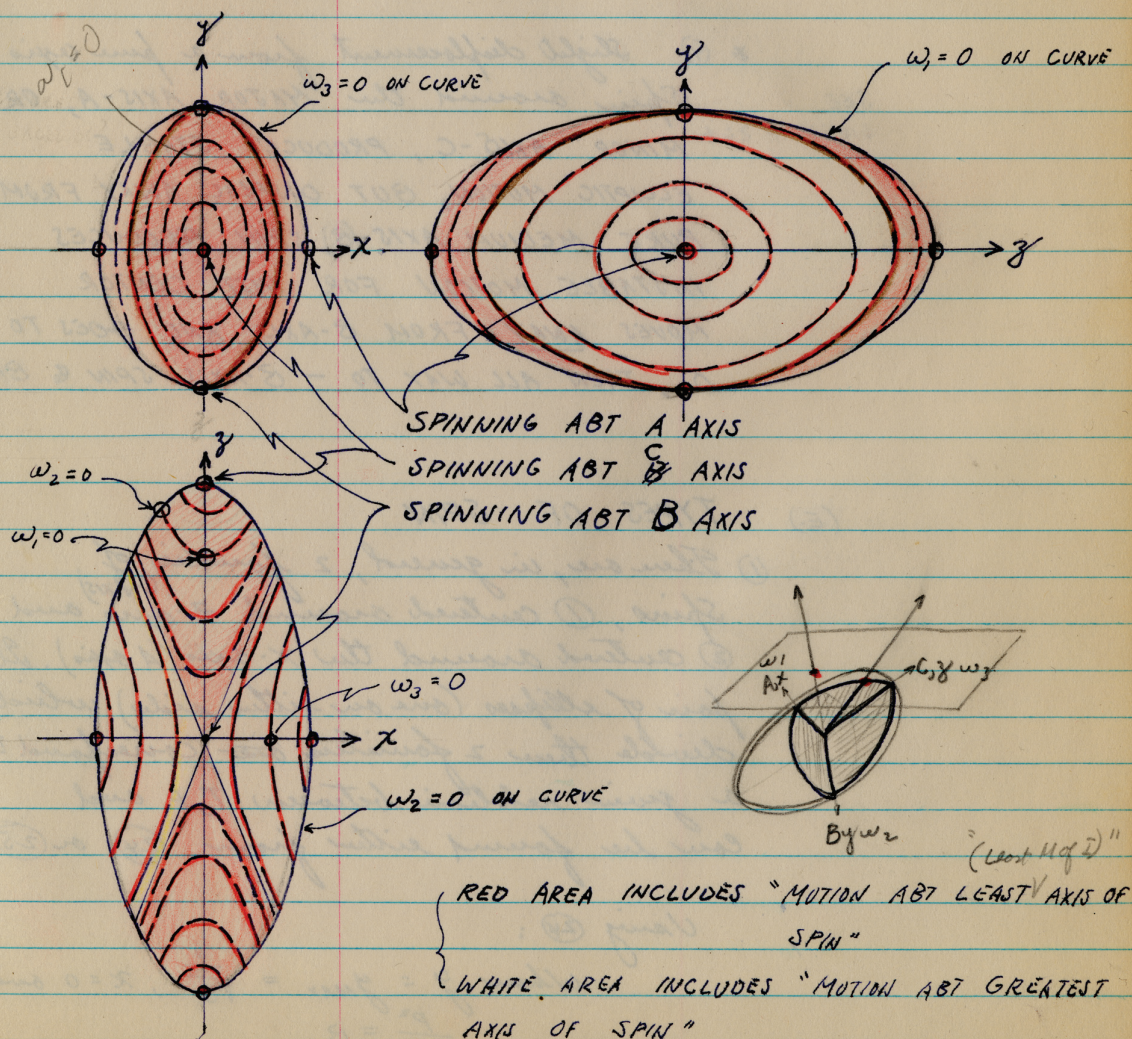 y
ω₁=0
ω₃=0 ON CURVE
x
y
ω₁=0 ON CURVE
z
SPINNING ABT A AXIS
C
SPINNING ABT B AXIS
SPINNING ABT B AXIS
z
ω₂=0
ω₁=0
ω₃=0
x
ω₂=0 ON CURVE
ω1
C, z ω₃
B y ω₂
"(Least M of I)"
RED AREA INCLUDES "MOTION ABT LEAST AXIS OF
SPIN"
WHITE AREA INCLUDES "MOTION ABT GREATEST
AXIS OF SPIN"